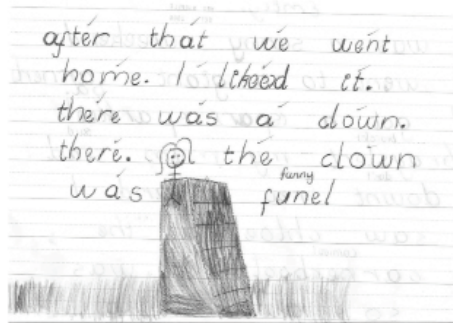 after that we went
home. I likeed it.
there was a clown.
there. the clown
funny
was funel